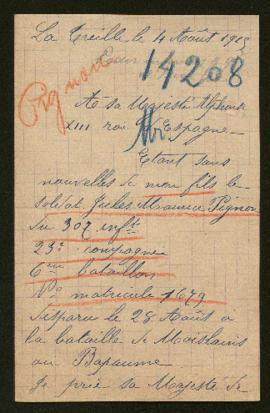 La Treille le 4 Août 1915
Pignon
14208
A sa Majesté Alphonse
XIII roi d'Espagne
Etant sans
nouvelles de mon fils le
soldat Jules Maurice Pignon
du 307 inftie
23e compagnie
6eme bataillon
No matricule 1679
disparu le 28 Août a
la bataille de Moislains
ou Bapaume
Je prie sa Majesté de